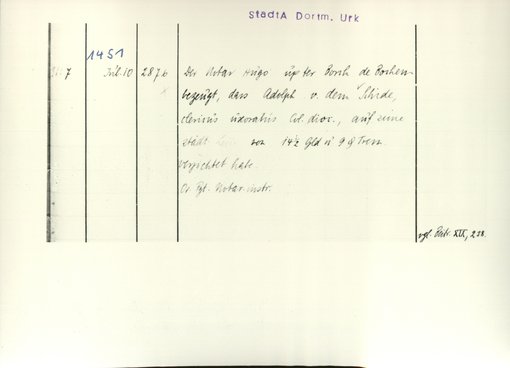 StadtA Dortm. Urk
1451
7 Juli 10 2876 Der Notar Hugo up ter Borch de Bochem
bezeugt, dass Adolph v. dem Schide,
clericus uxoratus Col. dioc., auf seine
städt von 14½ Gld u 9 g Trem
verzichtet hatte.
Or. Pgt. Notar. instr.
vgl. Beitr. XIX, 238.